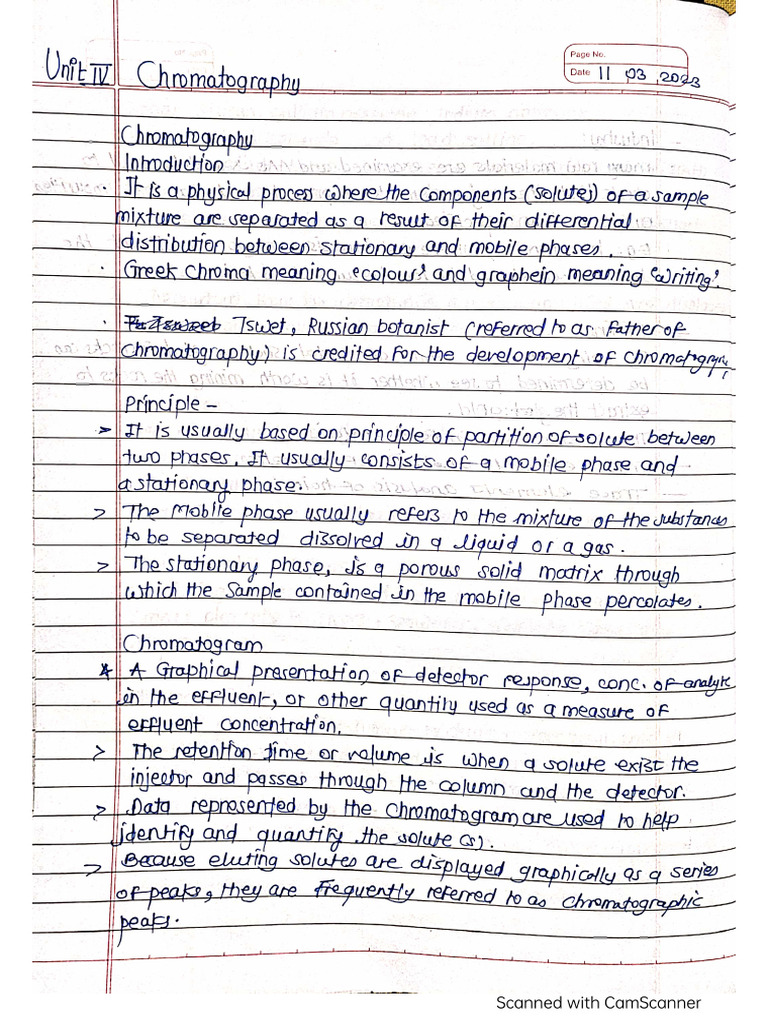 Page No.
Date 11 03 2023
Unit IV Chromatography
Chromatography
Introduction
· It is a physical process where the components (solutes) of a sample
mixture are separated as a result of their differential
distribution between stationary and mobile phases.
· Greek Chroma meaning 'colour' and graphein meaning 'writing'.
· Tswet, Russian botanist (referred to as Father of
Chromatography) is credited for the development of chromatography
Principle -
> It is usually based on principle of partition of solute between
two phases. It usually consists of a mobile phase and
a stationary phase.
> The Moblie phase usually refers to the mixture of the substances
to be separated dissolved in a liquid or a gas.
> The stationary phase, is a porous solid matrix through
which the Sample contained in the mobile phase percolates.
Chromatogram
* A Graphical presentation of detector response, conc. of analyte
in the effluent, or other quantity used as a measure of
effluent concentration.
> The retention time or volume is when a solute exist the
injector and passes through the column and the detector.
> Data represented by the chromatogram are used to help
identify and quantify the solute (s).
> Because eluting solutes are displayed graphically as a series
of peaks, they are frequently referred to as chromatographic
peaks.
Scanned with CamScanner